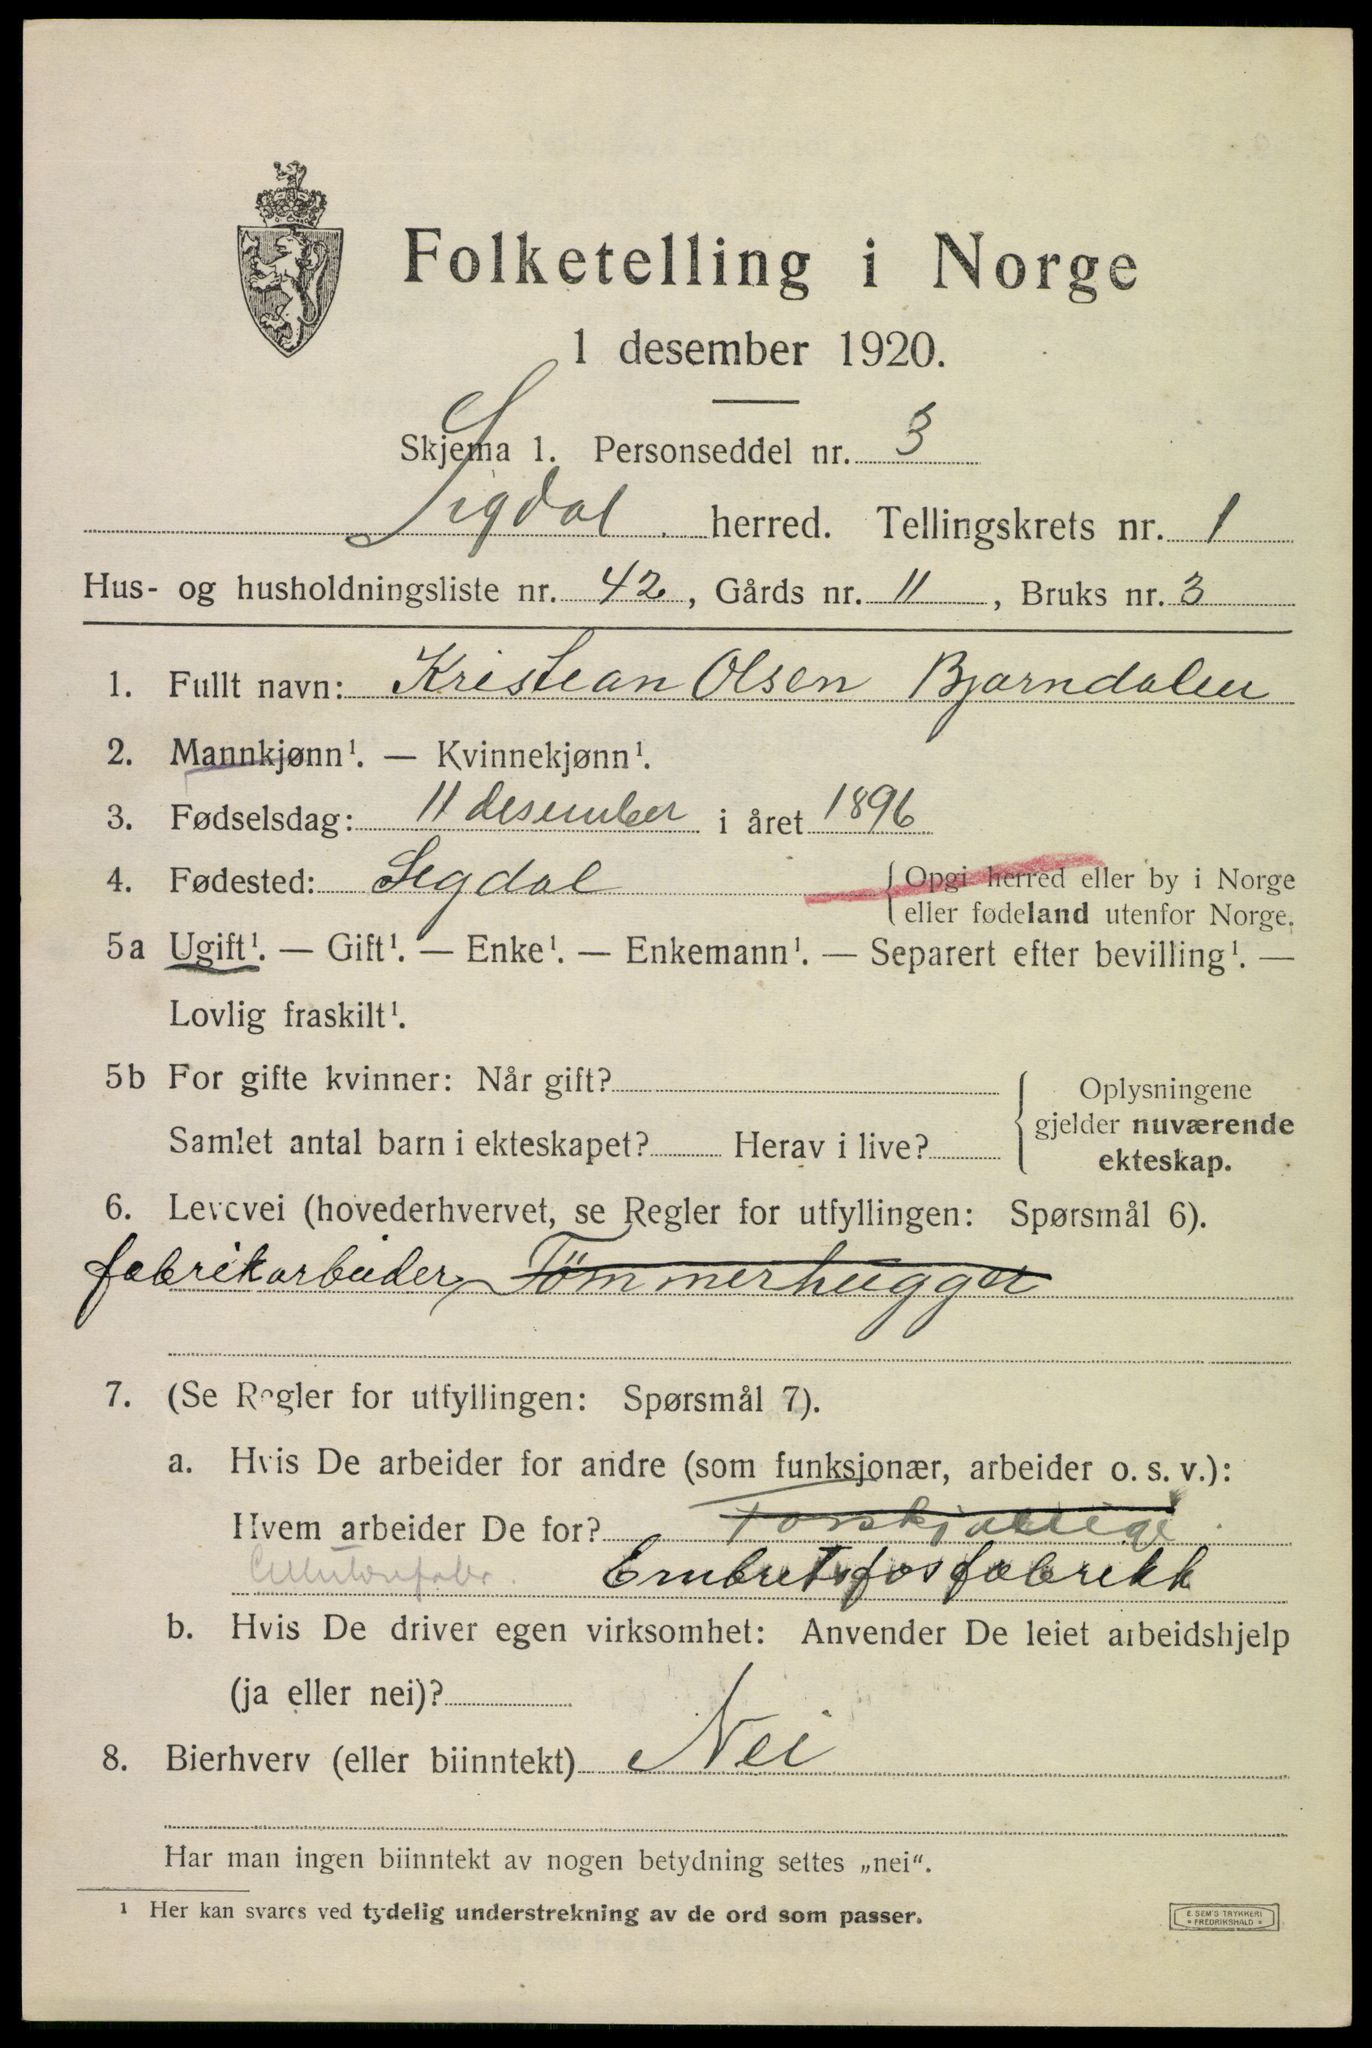 Folketelling i Norge
1 desember 1920.
Skjema 1. Personseddel nr. 3
Sigdal herred. Tellingskrets nr. 1
Hus- og husholdningsliste nr. 42, Gårds nr. 11, Bruks nr. 3
1. Fullt navn: Kristian Olsen Bjørndalen
2. Mannkjønn¹. — Kvinnekjønn¹.
3. Fødselsdag: 11 desember i året 1896
4. Fødested: Sigdal { Opgi herred eller by i Norge
eller fødeland utenfor Norge.
5a Ugift¹. — Gift¹. — Enke¹. — Enkemann¹. — Separert efter bevilling¹. —
Lovlig fraskilt¹.
5b For gifte kvinner: Når gift? { Oplysningene
gjelder nuværende
Samlet antal barn i ekteskapet? Herav i live?
ekteskap.
6. Levevei (hovederhvervet, se Regler for utfyllingen: Spørsmål 6).
fabrikarbeider, Tömmerhugger
7. (Se Regler for utfyllingen: Spørsmål 7).
a. Hvis De arbeider for andre (som funksjonær, arbeider o. s. v.):
Hvem arbeider De for? Forskjællige.
Embretsfosfabrikk
b. Hvis De driver egen virksomhet: Anvender De leiet arbeidshjelp
(ja eller nei)?
8. Bierhverv (eller biinntekt) Nei
Har man ingen biinntekt av nogen betydning settes „nei“.
¹ Her kan svares ved tydelig understrekning av de ord som passer.
E. SEM'S TRYKKERI
* FREDRIKSHALD *